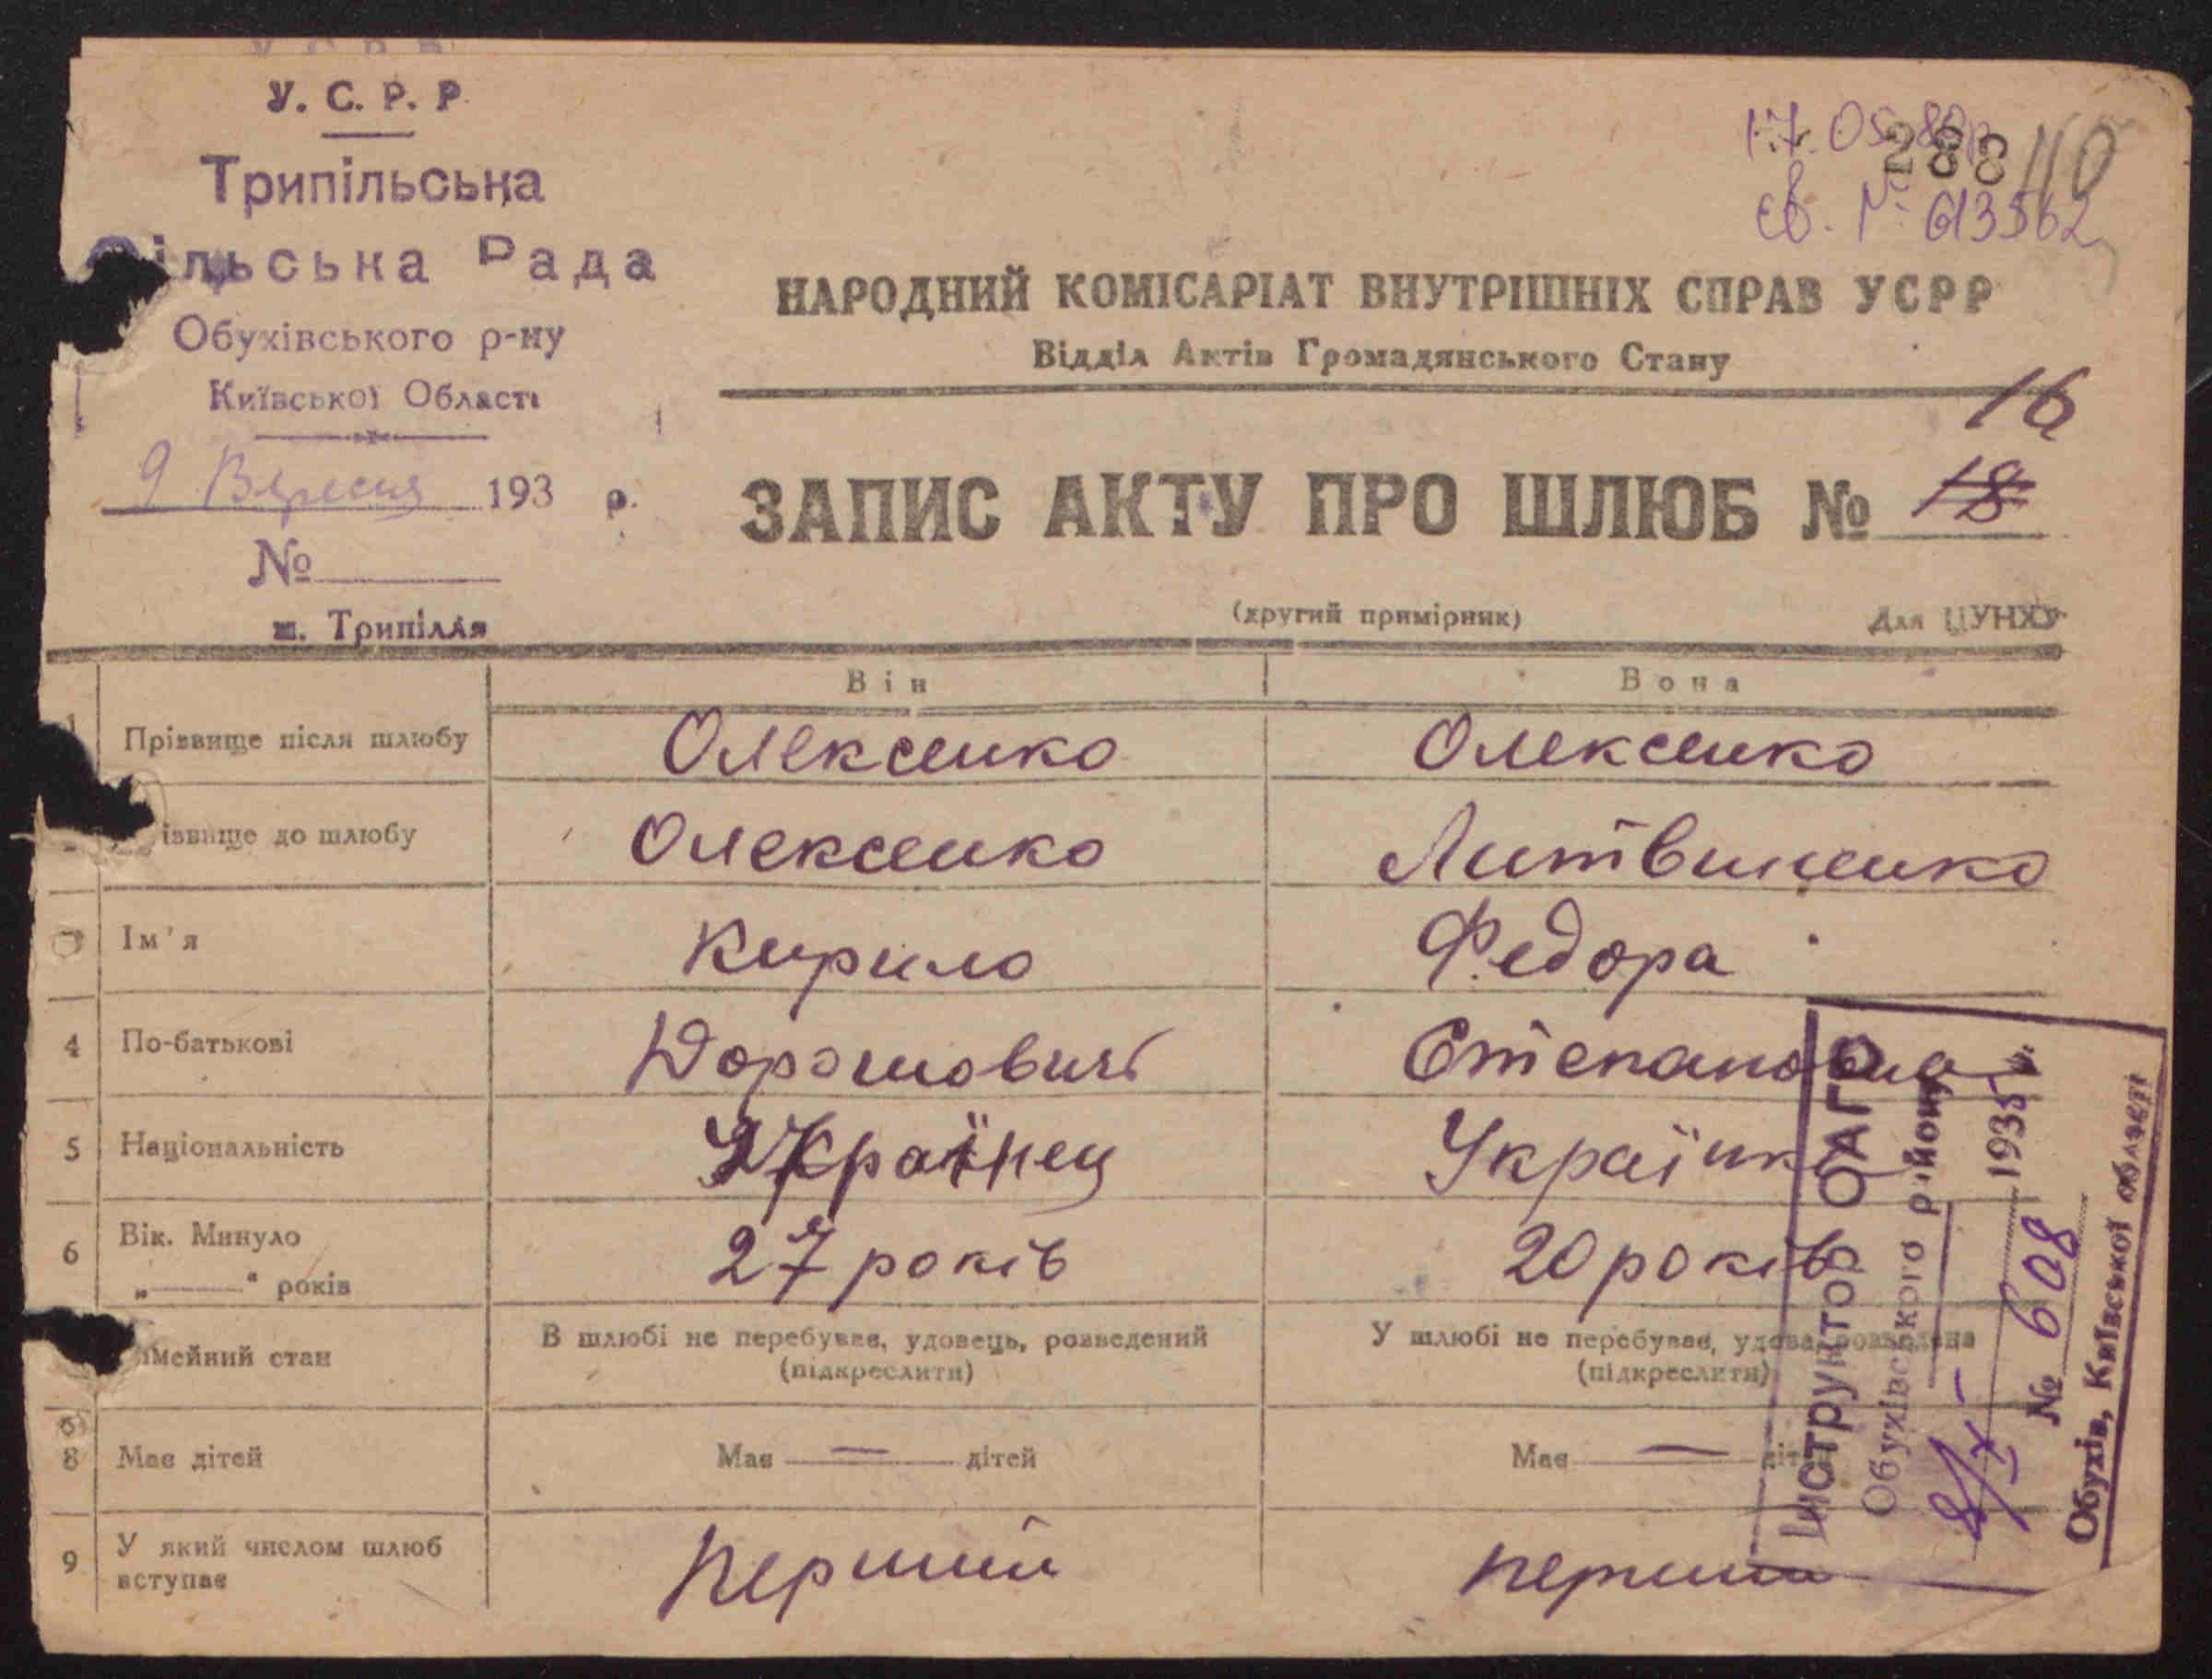 У. С. Р. Р.
Трипільська
Сільська Рада
Обухівського р-ну
Київської Області
9 Вересня 193 р.
№
м. Трипілля
17.05.89р. 283 110
св. № 613562
НАРОДНИЙ КОМІСАРІАТ ВНУТРІШНІХ СПРАВ УСРР
Відділ Актів Громадянського Стану
16
ЗАПИС АКТУ ПРО ШЛЮБ № 18
(другий примірник) Для ЦУНХУ
Він Вона
1 Прізвище після шлюбу Олексенко Олексенко
ізвище до шлюбу Олексенко Литвиненко
Ім'я Кирило Федора
4 По-батькові Дорошович Степановна
5 Національність Українец Українка
6 Вік. Минуло
„——" років 27 років 20 років
імейний стан В шлюбі не перебував, удовець, розведений У шлюбі не перебував, удова, розведена
(підкреслити) (підкреслити)
8 Має дітей Має — дітей Має — діт
9 У який числом шлюб
вступає перший перший
Інструктор ОАГС
Обухівського району
8/X- 1935 р.
№ 608
Обухів, Київської області